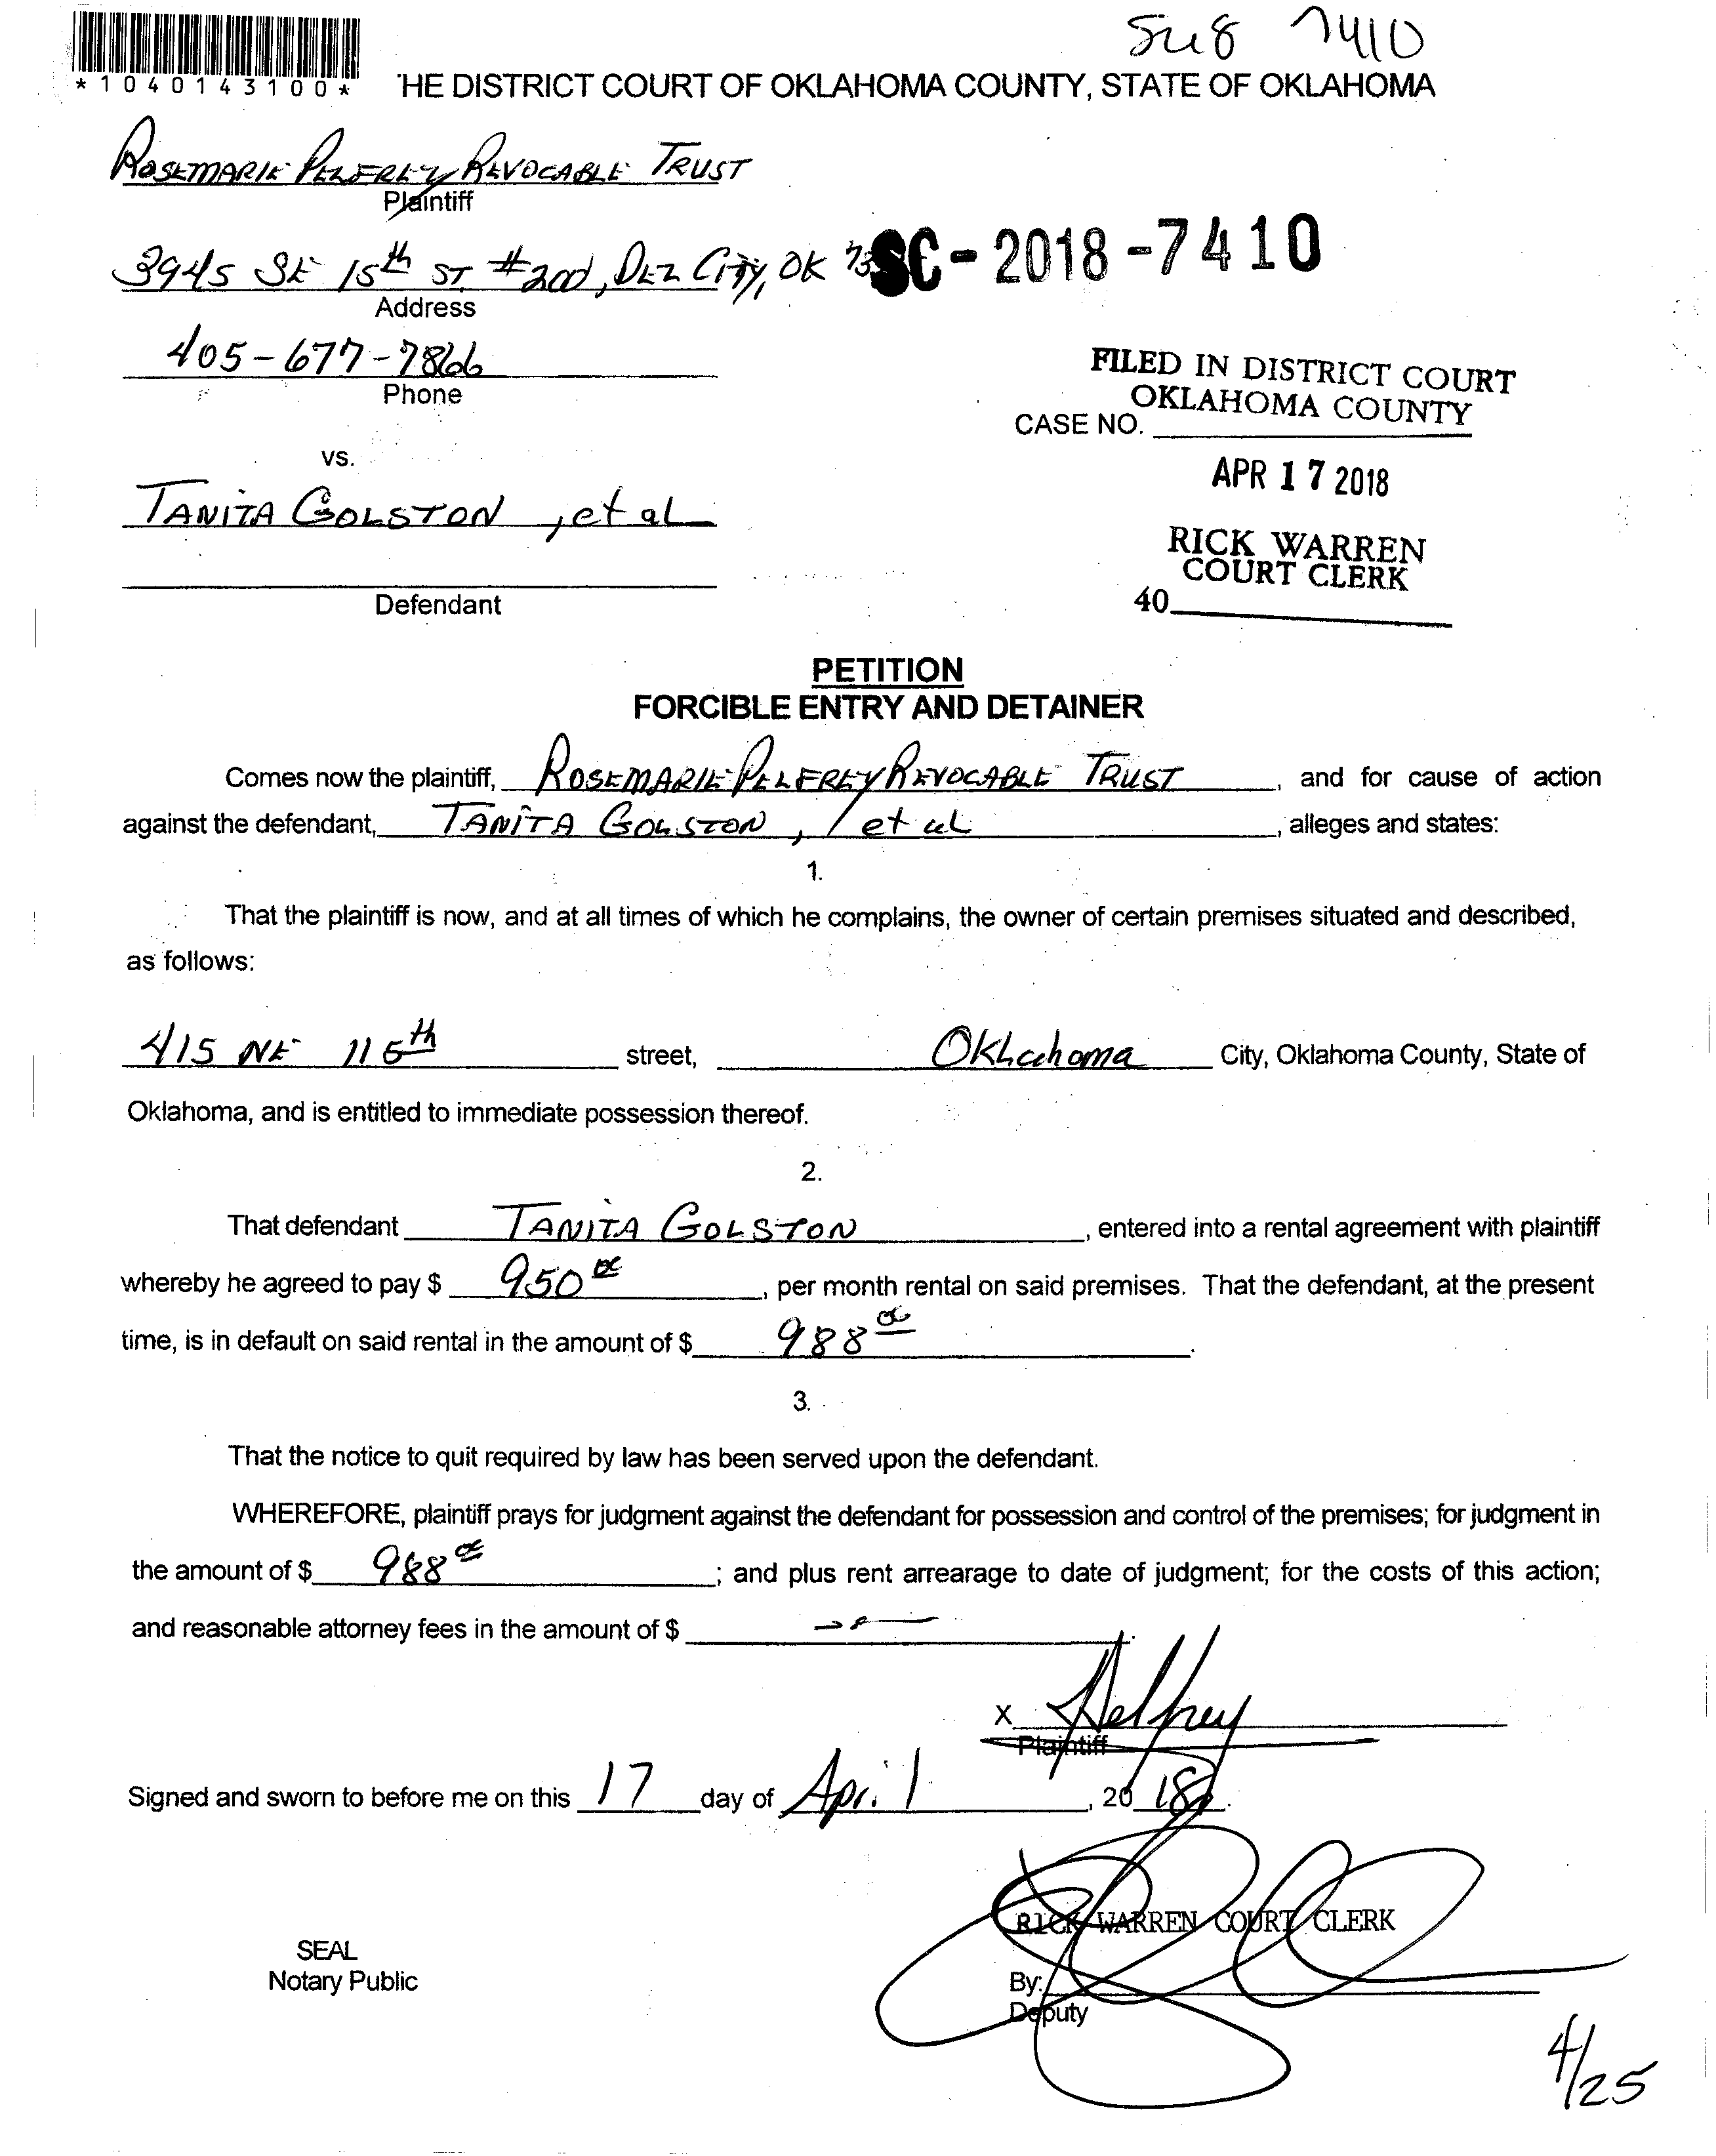 Su8 7410
*1040143100*
HE DISTRICT COURT OF OKLAHOMA COUNTY, STATE OF OKLAHOMA
ROSEMARIE PELFREY REVOCABLE TRUST
Plaintiff
3945 SE 15th ST. #200, DEL CITY, OK 73
SC-2018-7410
Address
405-677-7866
Phone
FILED IN DISTRICT COURT
OKLAHOMA COUNTY
CASE NO.
vs.
APR 17 2018
TANITA GOLSTON, et al
RICK WARREN
COURT CLERK
Defendant
40
PETITION
FORCIBLE ENTRY AND DETAINER
Comes now the plaintiff, ROSEMARIE PELFREY REVOCABLE TRUST, and for cause of action
against the defendant, TANITA GOLSTON, et al, alleges and states:
1.
That the plaintiff is now, and at all times of which he complains, the owner of certain premises situated and described,
as follows:
415 NE 115th street, Oklahoma City, Oklahoma County, State of
Oklahoma, and is entitled to immediate possession thereof.
2.
That defendant TANITA GOLSTON, entered into a rental agreement with plaintiff
whereby he agreed to pay $ 950 00, per month rental on said premises. That the defendant, at the present
time, is in default on said rental in the amount of $ 988 00.
3.
That the notice to quit required by law has been served upon the defendant.
WHEREFORE, plaintiff prays for judgment against the defendant for possession and control of the premises; for judgment in
the amount of $ 988 00; and plus rent arrearage to date of judgment; for the costs of this action;
and reasonable attorney fees in the amount of $
X Pelfrey
Plaintiff
Signed and sworn to before me on this 17 day of April, 2018.
RICK WARREN COURT CLERK
SEAL
Notary Public
By:
Deputy
4/25